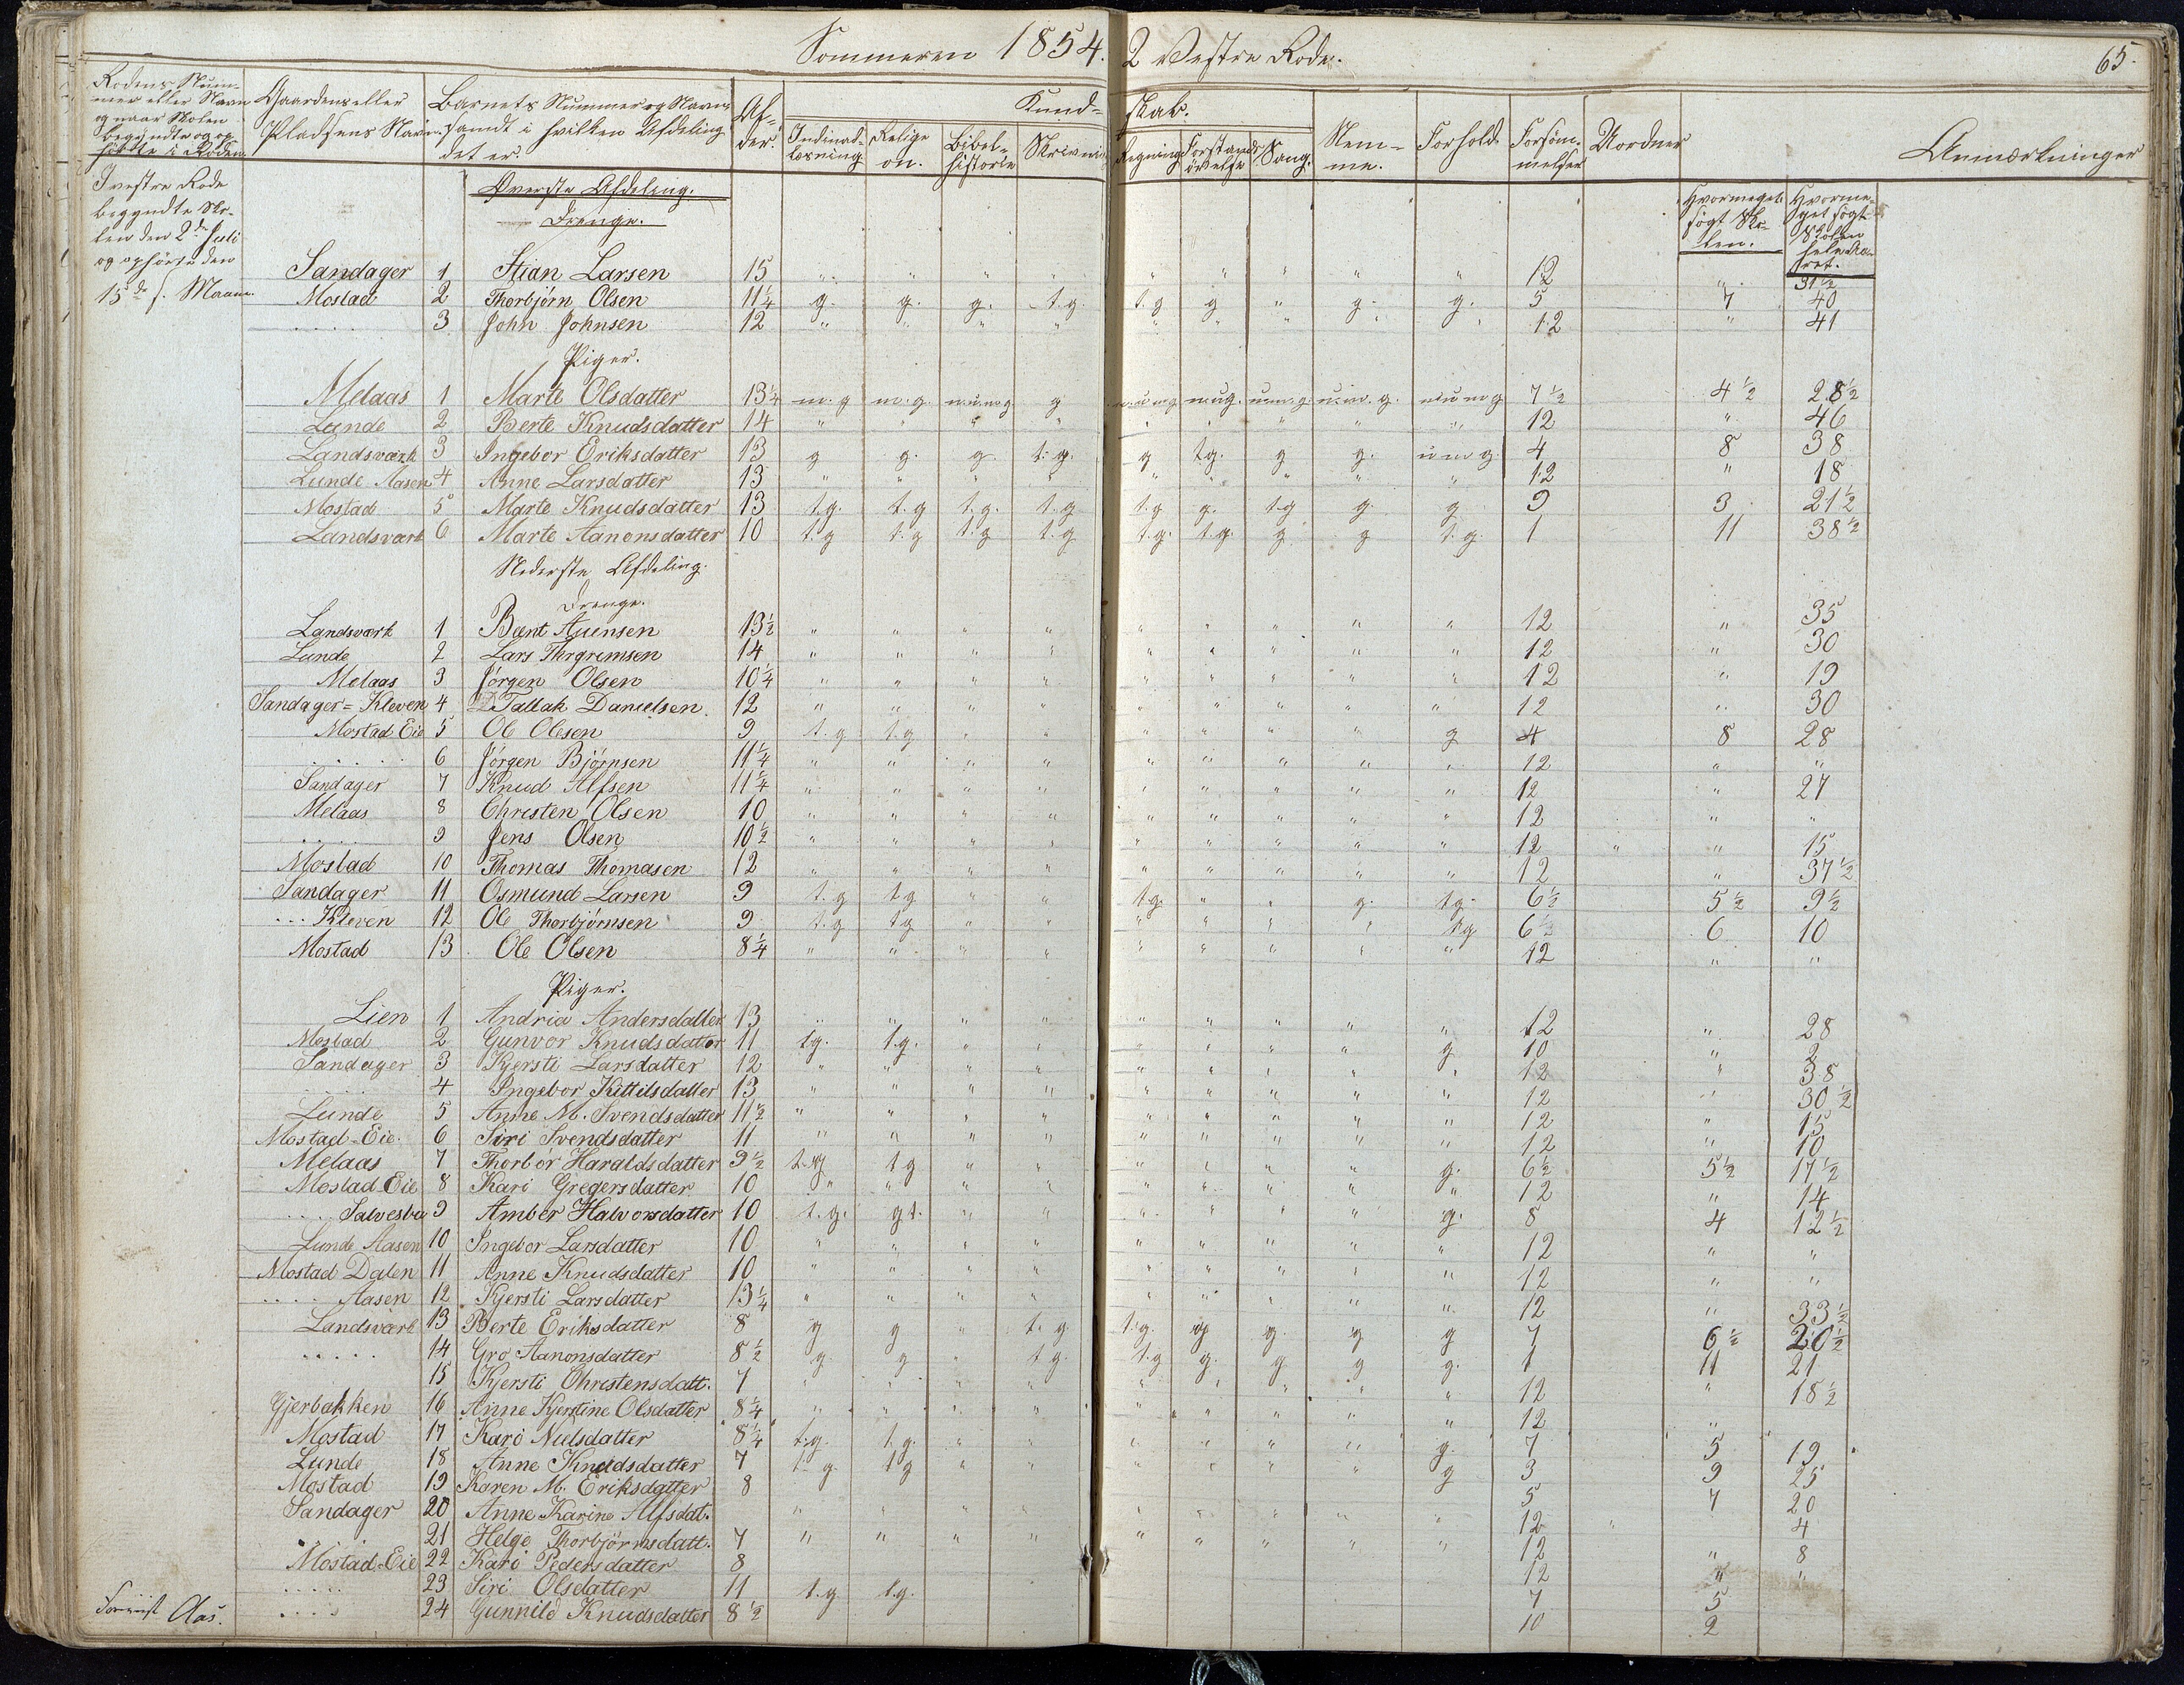 Sommeren 1854. 2 Vestre Rode. 65.
Rodens Nummer eller Navn og naar Skolen begyndte og ophørte i Roden. Gaardens eller Pladsens Navn. Barnets Nummer og Navn samt i hvilken Afdeling det er. Al- der. Kund- skab. Indenad- læsning Religi- on. Bibel- historie Skrivning Regning Forstands- øvelse Sang. Nem- me. Forhold Forsøm- melser Uordner Anmærkninger
I vestre Rode
begyndte Sko-
len den 2den Juli
og ophørte den
15de s. Maaned.
Hvormeget søgt Sko- len. Hvorme- get søgt Skolen hele Aa- ret.
Øverste Afdeling.
Drenge.
Sandager 1 Stian Larsen 15 " " " " " " " " " 12 " 31½
Mostad 2 Thorbjørn Olsen 11¼ g. g. g. t.g. t.g g " g. g. 5 7 40
.... 3 John Johnsen 12 " " " " " " " " " 12 " 41
Piger.
Melaas 1 Marte Olsdatter 13¼ m.g m.g. m.u.m.g g m.u.m.g m.u.g. u.m.g. u.m.g. m.u.m.g 7½ 4½ 28½
Lunde 2 Berte Knudsdatter 14 " " " " " " " " " 12 " 46
Landsværk 3 Ingebor Eriksdatter 13 g g. g. t.g. g t.g. g g. u.m.g. 4 8 38
Lunde Aasen 4 Anne Larsdatter 13 " " " " " " " " " 12 " 18
Mostad 5 Marte Knudsdatter 13 t.g. t.g t.g. t.g t.g g. t.g g. g 9 3 21½
Landsværk 6 Marte Aanonsdatter 10 t.g t.g t.g t.g t.g. t.g. g g t.g. 1 11 38½
Nederste Afdeling.
Drenge.
Landsværk 1 Bænt Auensen 13½ " " " " " " " " " 12 " 35
Lunde 2 Lars Thrgrimsen 14 " " " " " " " " " 12 " 30
Melaas 3 Jørgen Olsen 10¼ " " " " " " " " " 12 " 19
Sandager = Kleven 4 Tallak Danielsen 12 " " " " " " " " " 12 " 30
Mostad Eie 5 Ole Olesen 9 t.g t.g " " " " " " g 4 8 28
..... 6 Jørgen Bjørnsen 11¼ " " " " " " " " " 12 " "
Sandager 7 Knud Alfsen 11¼ " " " " " " " " " 12 " 27
Melaas 8 Christen Olsen 10 " " " " " " " " " 12 " "
.... 9 Jens Olsen 10½ " " " " " " " " " 12 " " 15
Mostad 10 Thomas Thomasen 12 " " " " " " " " " 12 " 37½
Sandager 11 Osmund Larsen 9 t.g t.g " " t.g. " " g. t.g. 6½ 5½ 9½
... Kleven 12 Ole Thorbjørnsen 9 t.g t.g " " " " " " t.g 6½ 6 10
Mostad 13 Ole Olsen 8¼ " " " " " " " " " 12 " "
Piger.
Lien 1 Andria Andersdatter 13 " " " " " " " " " 12 " 28
Mostad 2 Gunvor Knudsdatter 11 t.g. t.g. " " " " " " g 10 " 2
Sandager 3 Kjersti Larsdatter 12 " " " " " " " " " 12 " 38
.... 4 Ingebor Kittilsdatter 13 " " " " " " " " " 12 " 30½
Lunde 5 Anne M. Svendsdatter 11½ " " " " " " " " " 12 " 15
Mostad-Eie. 6 Siri Svendsdatter 11 " " " " " " " " " 12 " 10
Melaas 7 Thorbør Haraldsdatter 9½ t.g t.g " " " " " " g. 6½ 5½ 17½
Mostad-Eie 8 Kari Gregersdatter 10 " " " " " " " " " 12 " 14
.... Salvesbu 9 Amber Halvorsdatter 10 t.g. g t. " " " " " " g. 8 4 12½
Lunde Aasen 10 Ingebor Larsdatter 10 " " " " " " " " " 12 " "
Mostad Dalen 11 Anne Knudsdatter 10 " " " " " " " " " 12 " "
.... Aasen 12 Kjersti Larsdatter 13¼ " " " " " " " " " 12 " 33½
Landsværk 13 Berte Eriksdatter 8 g g " t.g t.g. g g. g g 7 6½ 20½
..... 14 Gro Aanonsdatter 8½ g. g " t.g. t.g g. g g g. 1 11 21
15 Kjersti Christensdatt. 7 " " " " " " " " " 12 " 18½
Gjerbakken 16 Anne Kjerstine Olsdatter 8¼ " " " " " " " " " 12 "
Mostad 17 Kari Nielsdatter 8¼ t.g. t.g. " " " " " " g. 7 5 19
Lunde 18 Anne Knudsdatter 7 t.g. t.g " " " " " " g 3 9 25
Mostad 19 Karen M. Eriksdatter 8 5 7 20
Sandager 20 Anne Karine Alfsdat. " " " " " " " " " 12 4
.... 21 Helge Thorbjørnsdatt. 7 " " " " " " " " 12 " 8
Mostad-Eie 22 Kari Pedersdatter 8 12 " "
..... 23 Siri Olsdatter 11 t.g t.g. 7 5
Aas. .... 24 Gunnild Knudsdatter 8½ 10 2